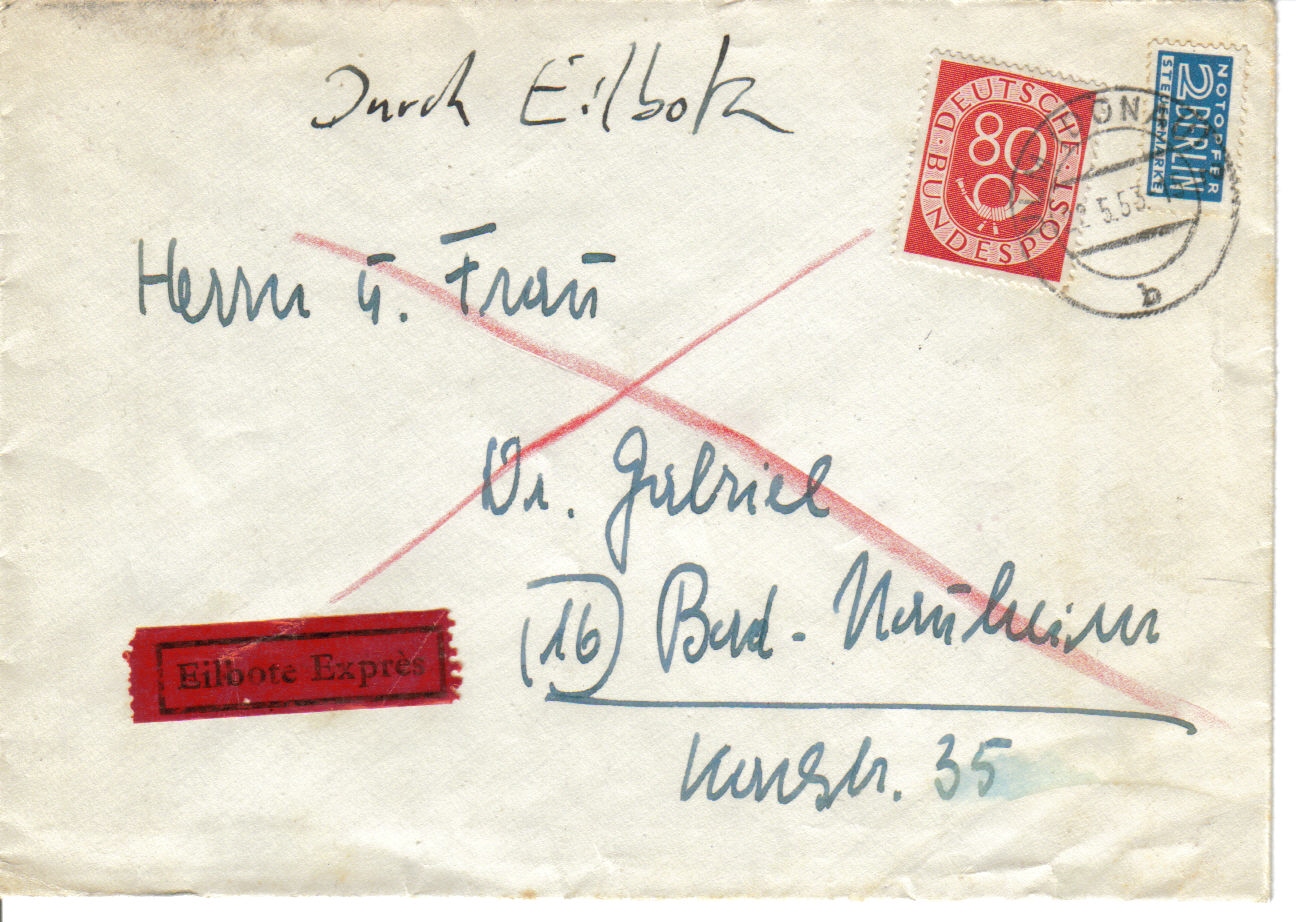 Durch Eilbote
DEUTSCHE · BUNDESPOST ·
80
NOTOPFER
2 BERLIN
STEUERMARKE
5.53.
b
Herrn u. Frau
Dr. Gabriel
(16) Bad-Nauheim
35
Eilbote Exprès